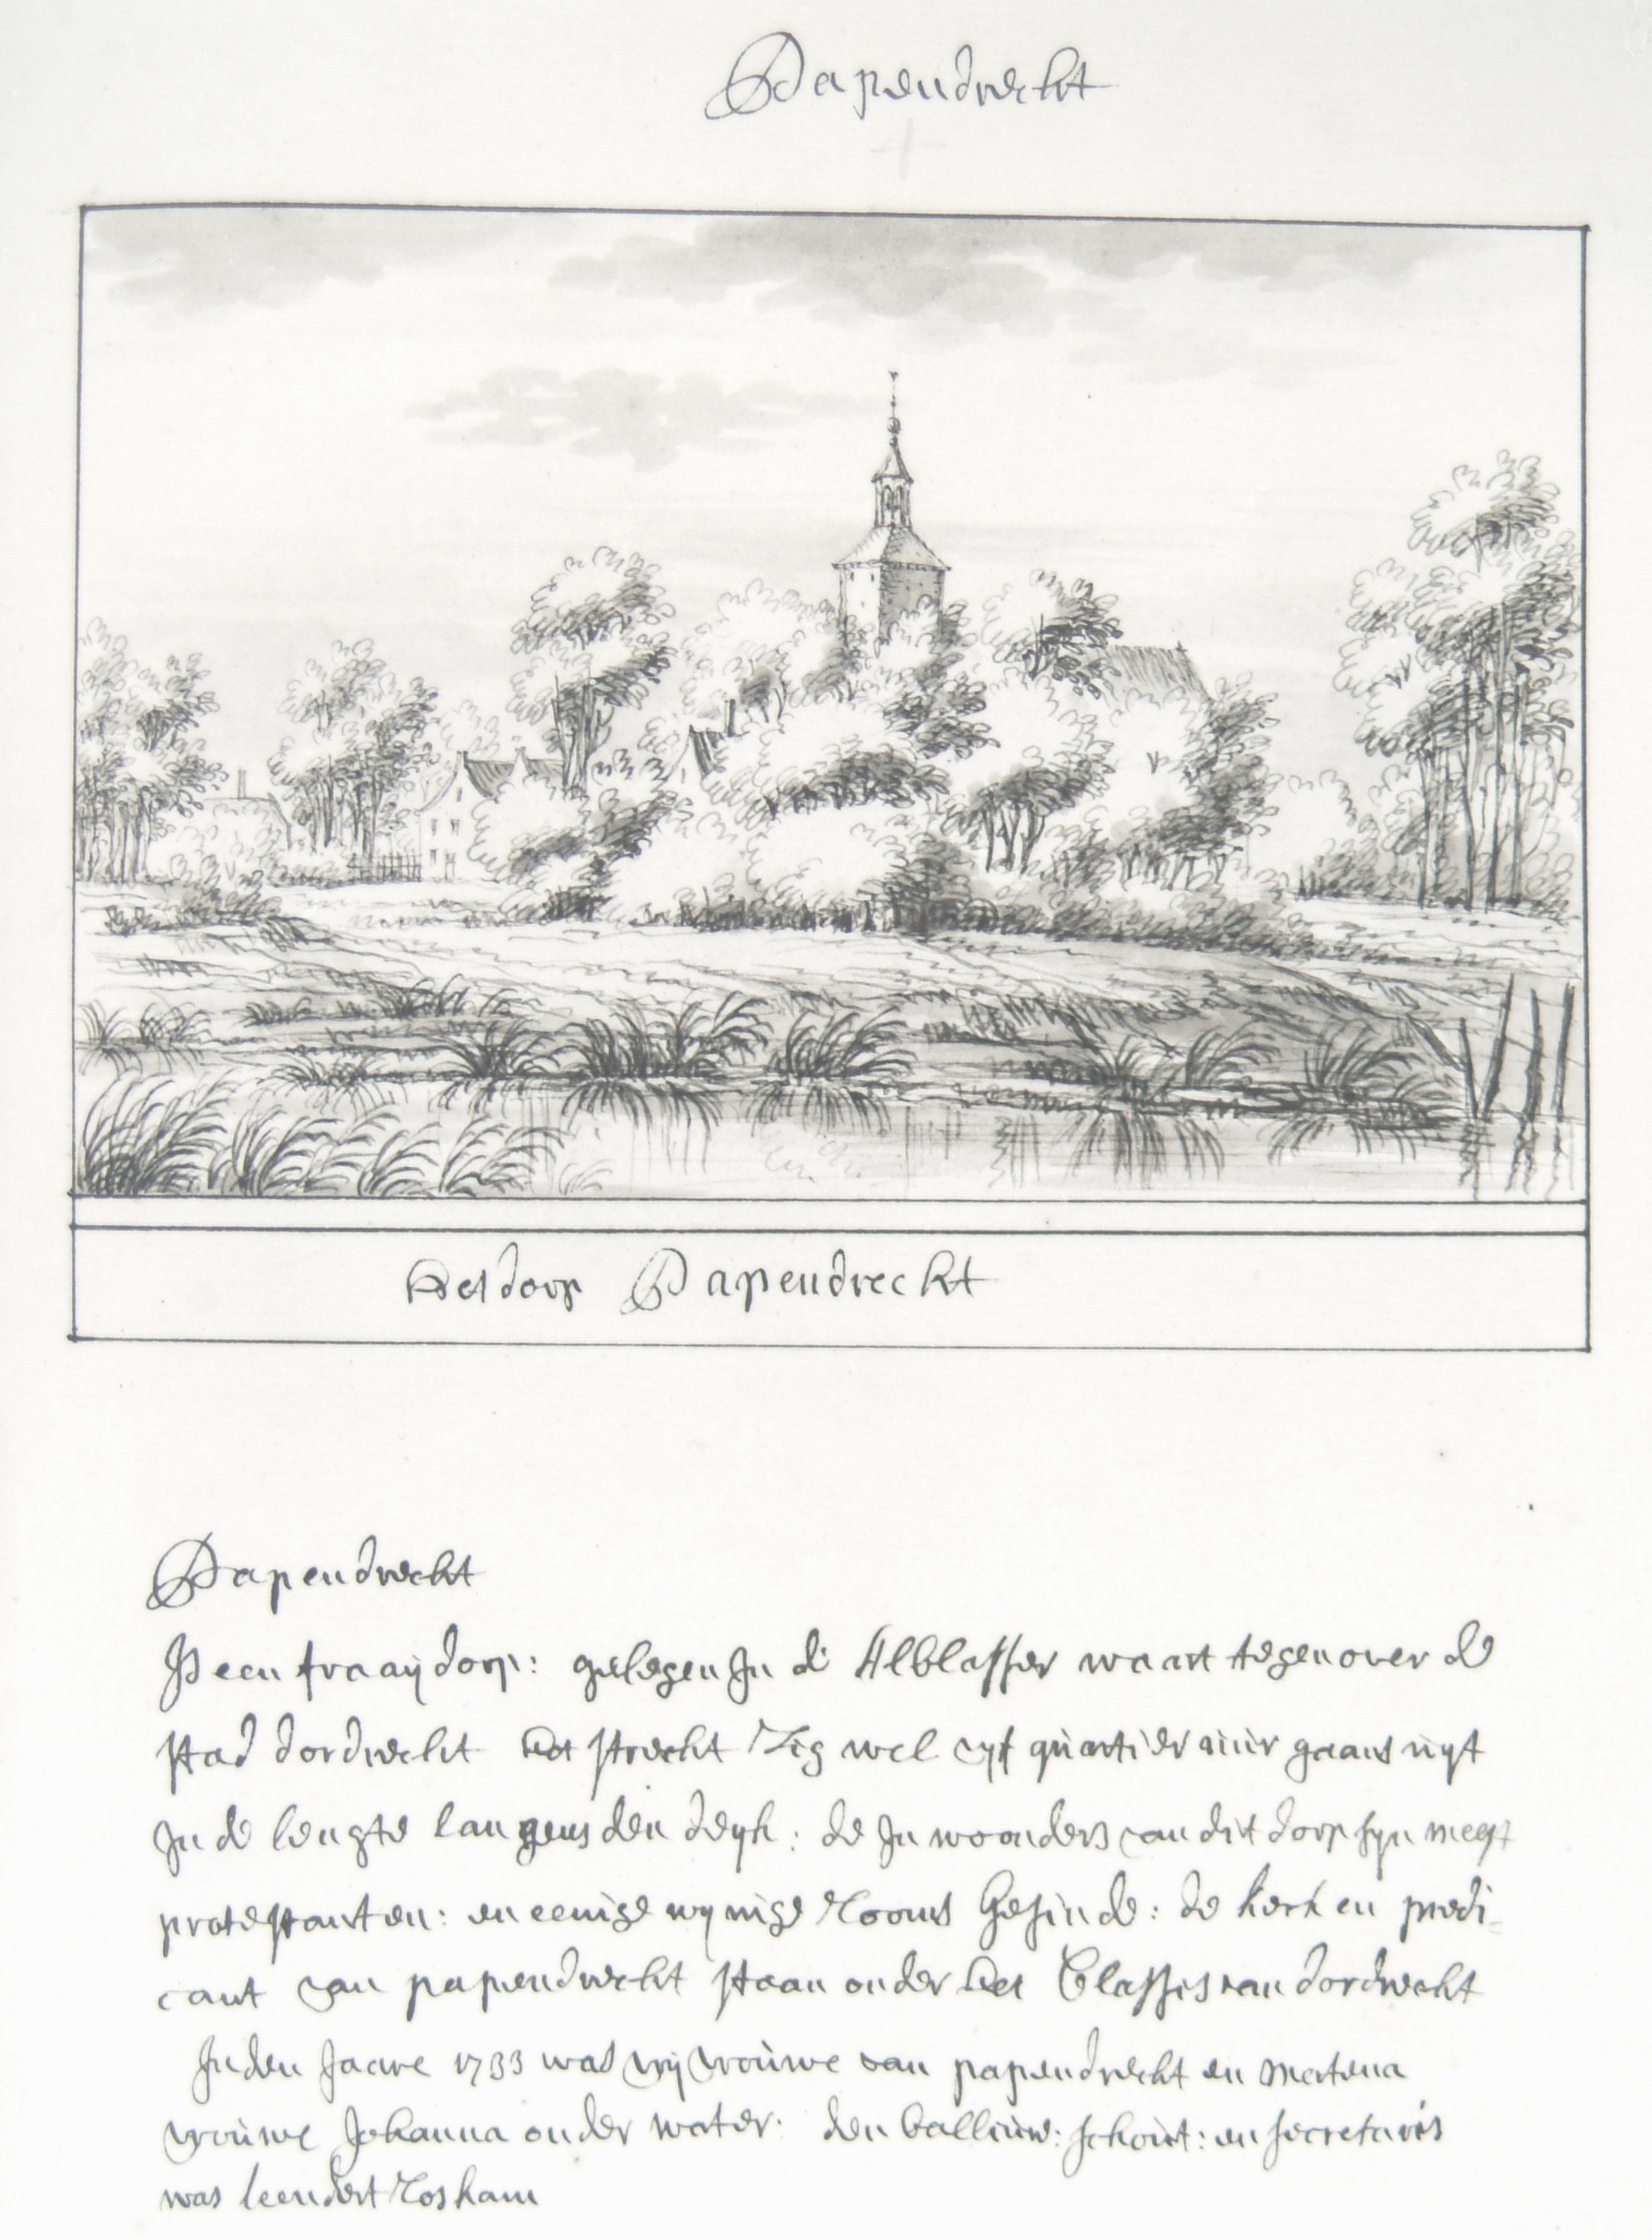 Papendrecht
Het dorp Papendrecht
Papendrecht
Is een fraaij dorp: gelegen In de Alblasser waart tegen over de
stad dordrecht Het strecht Zig wel vyf quartier uur gaans uyt
In de lengte langens den deyk: de In woonders van dit dorp syn meest
protestanten: en eenige wynige Rooms Gesinde: de kerk en predi-
cant van papendrecht staan onder Het Classis van dordrecht
In den Jaare 1733 was vrij vrouwe van papendrecht en matena
vrouwe Johanna onder water: den balliuw: schout: en secretaris
was leendert Roskam